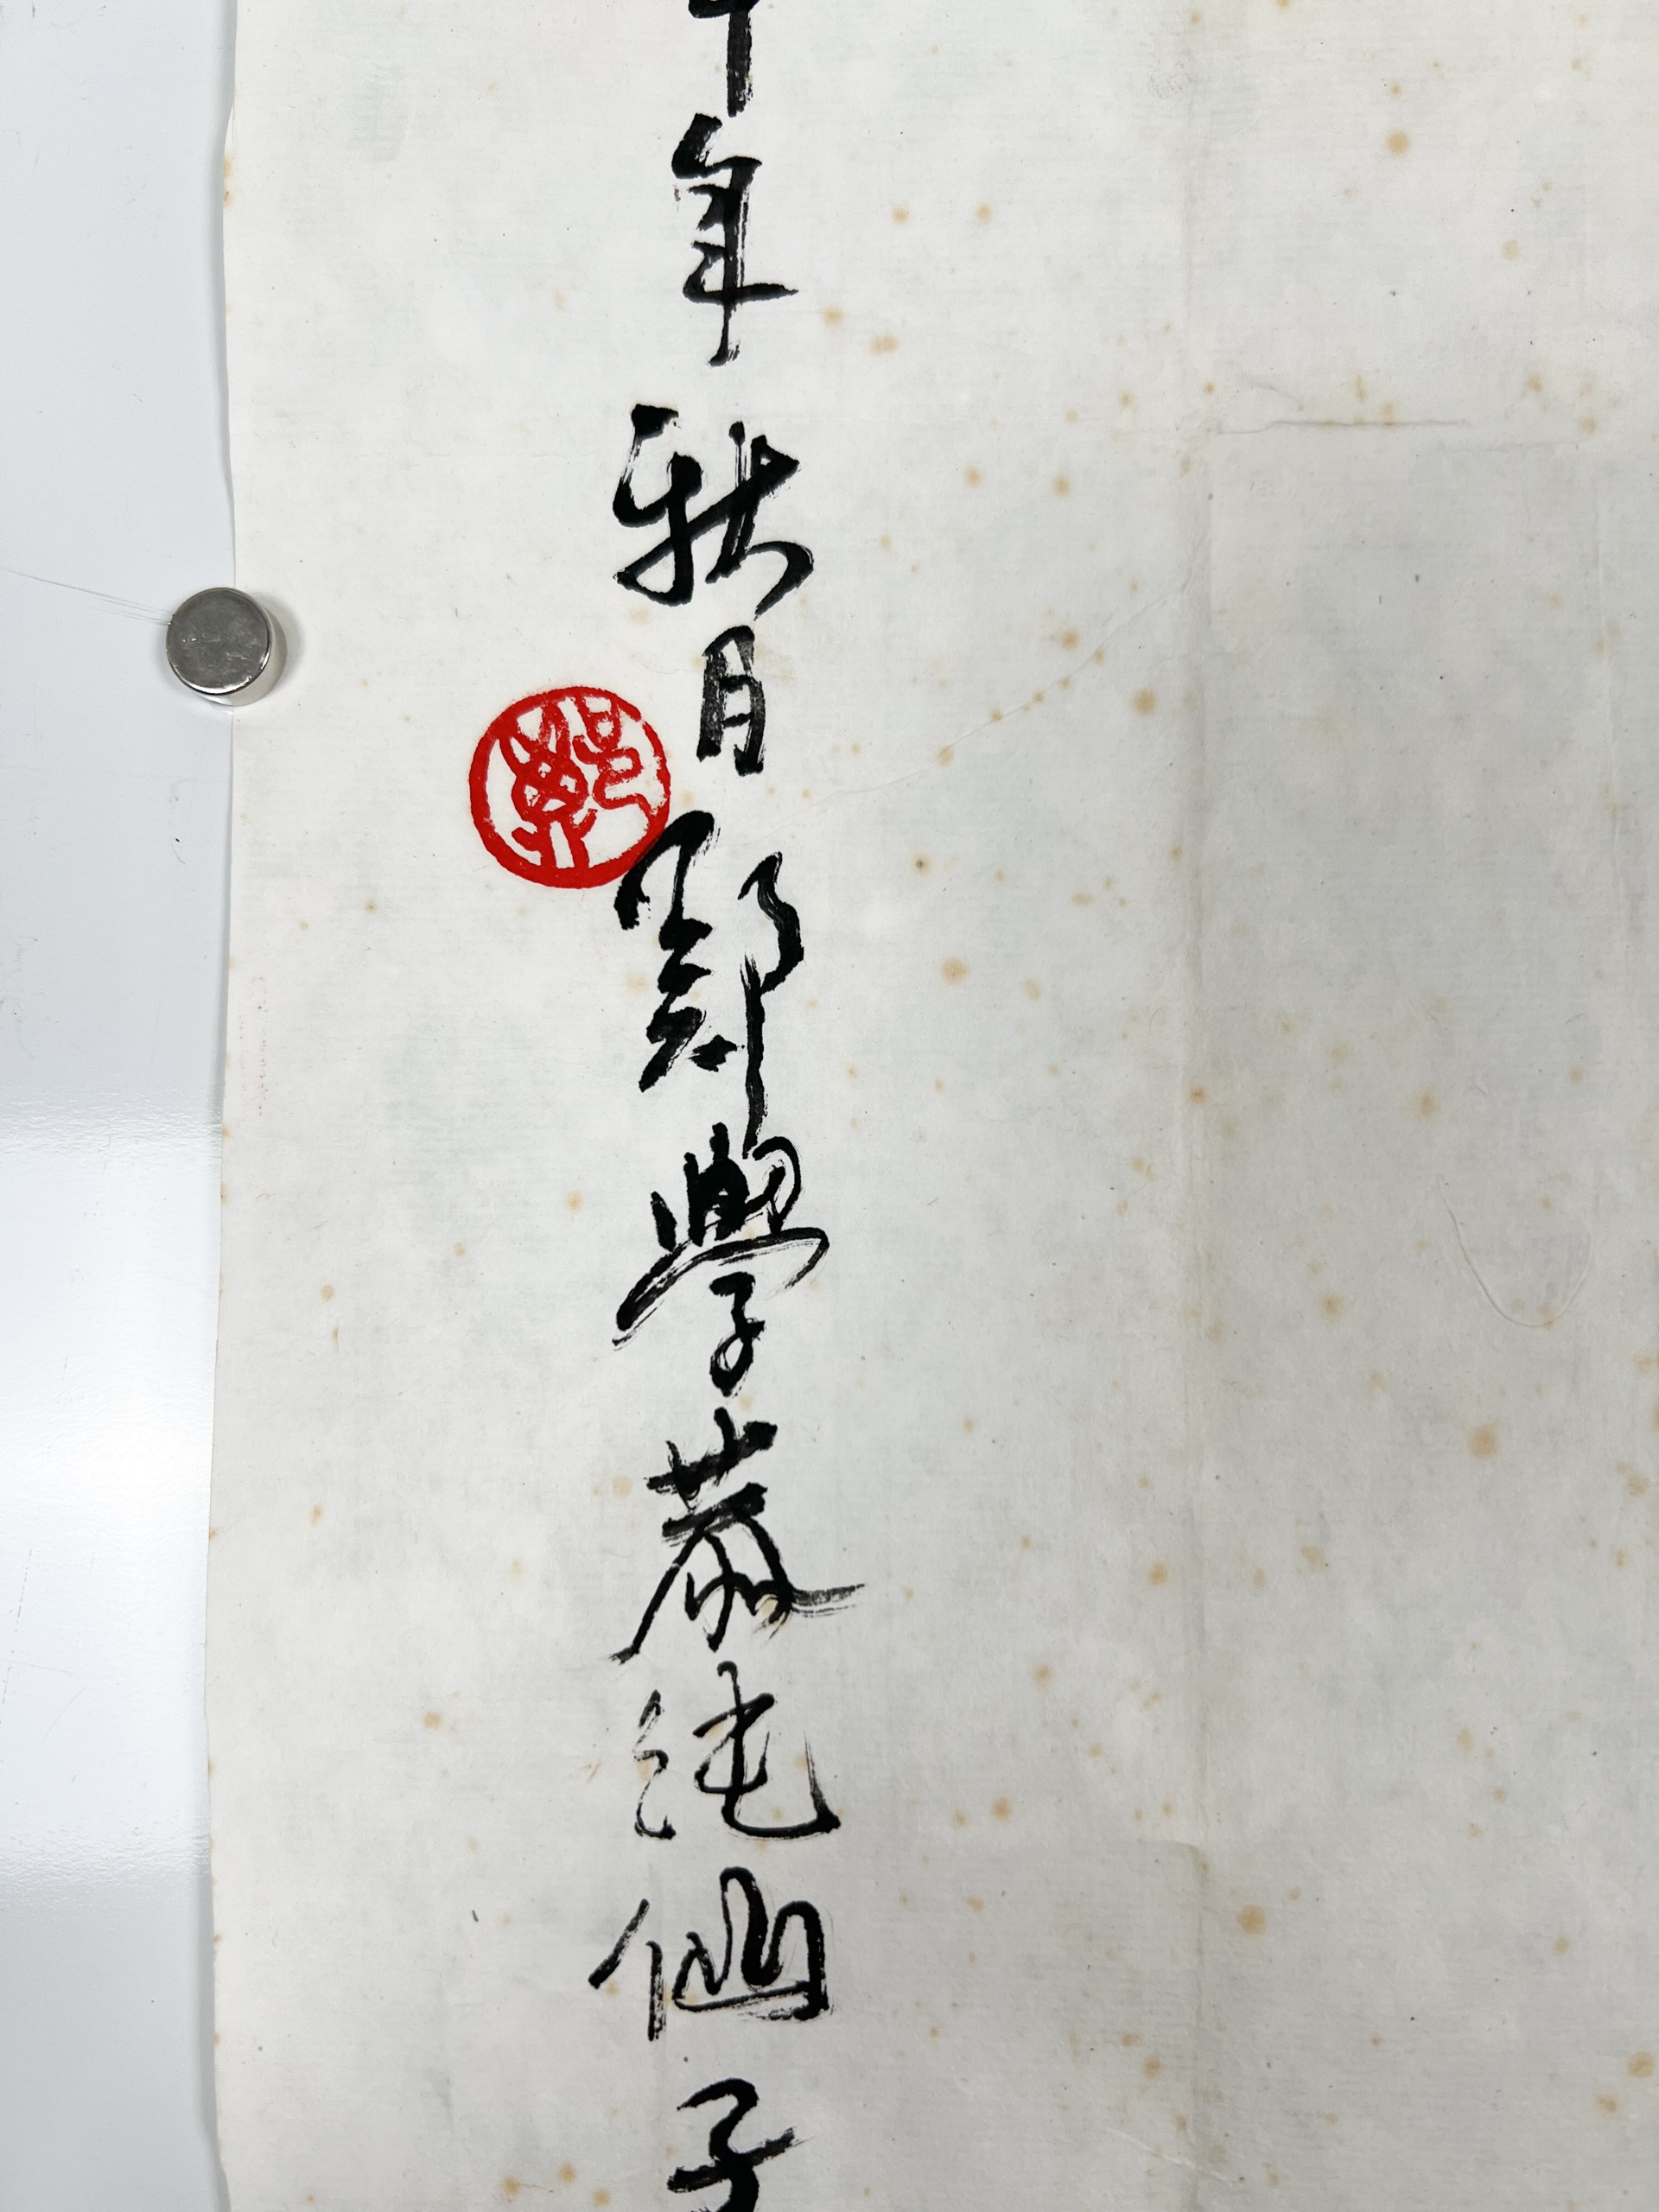 年秋月鄭學恭純仙子
鄭